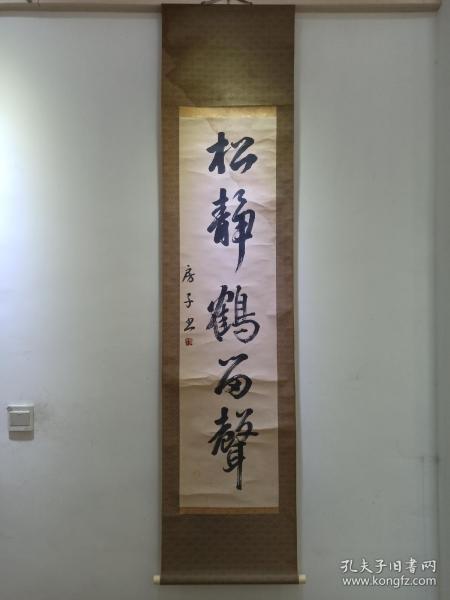 松静鹤留聲
房子书
孔夫子旧书网
www.kongfz.com